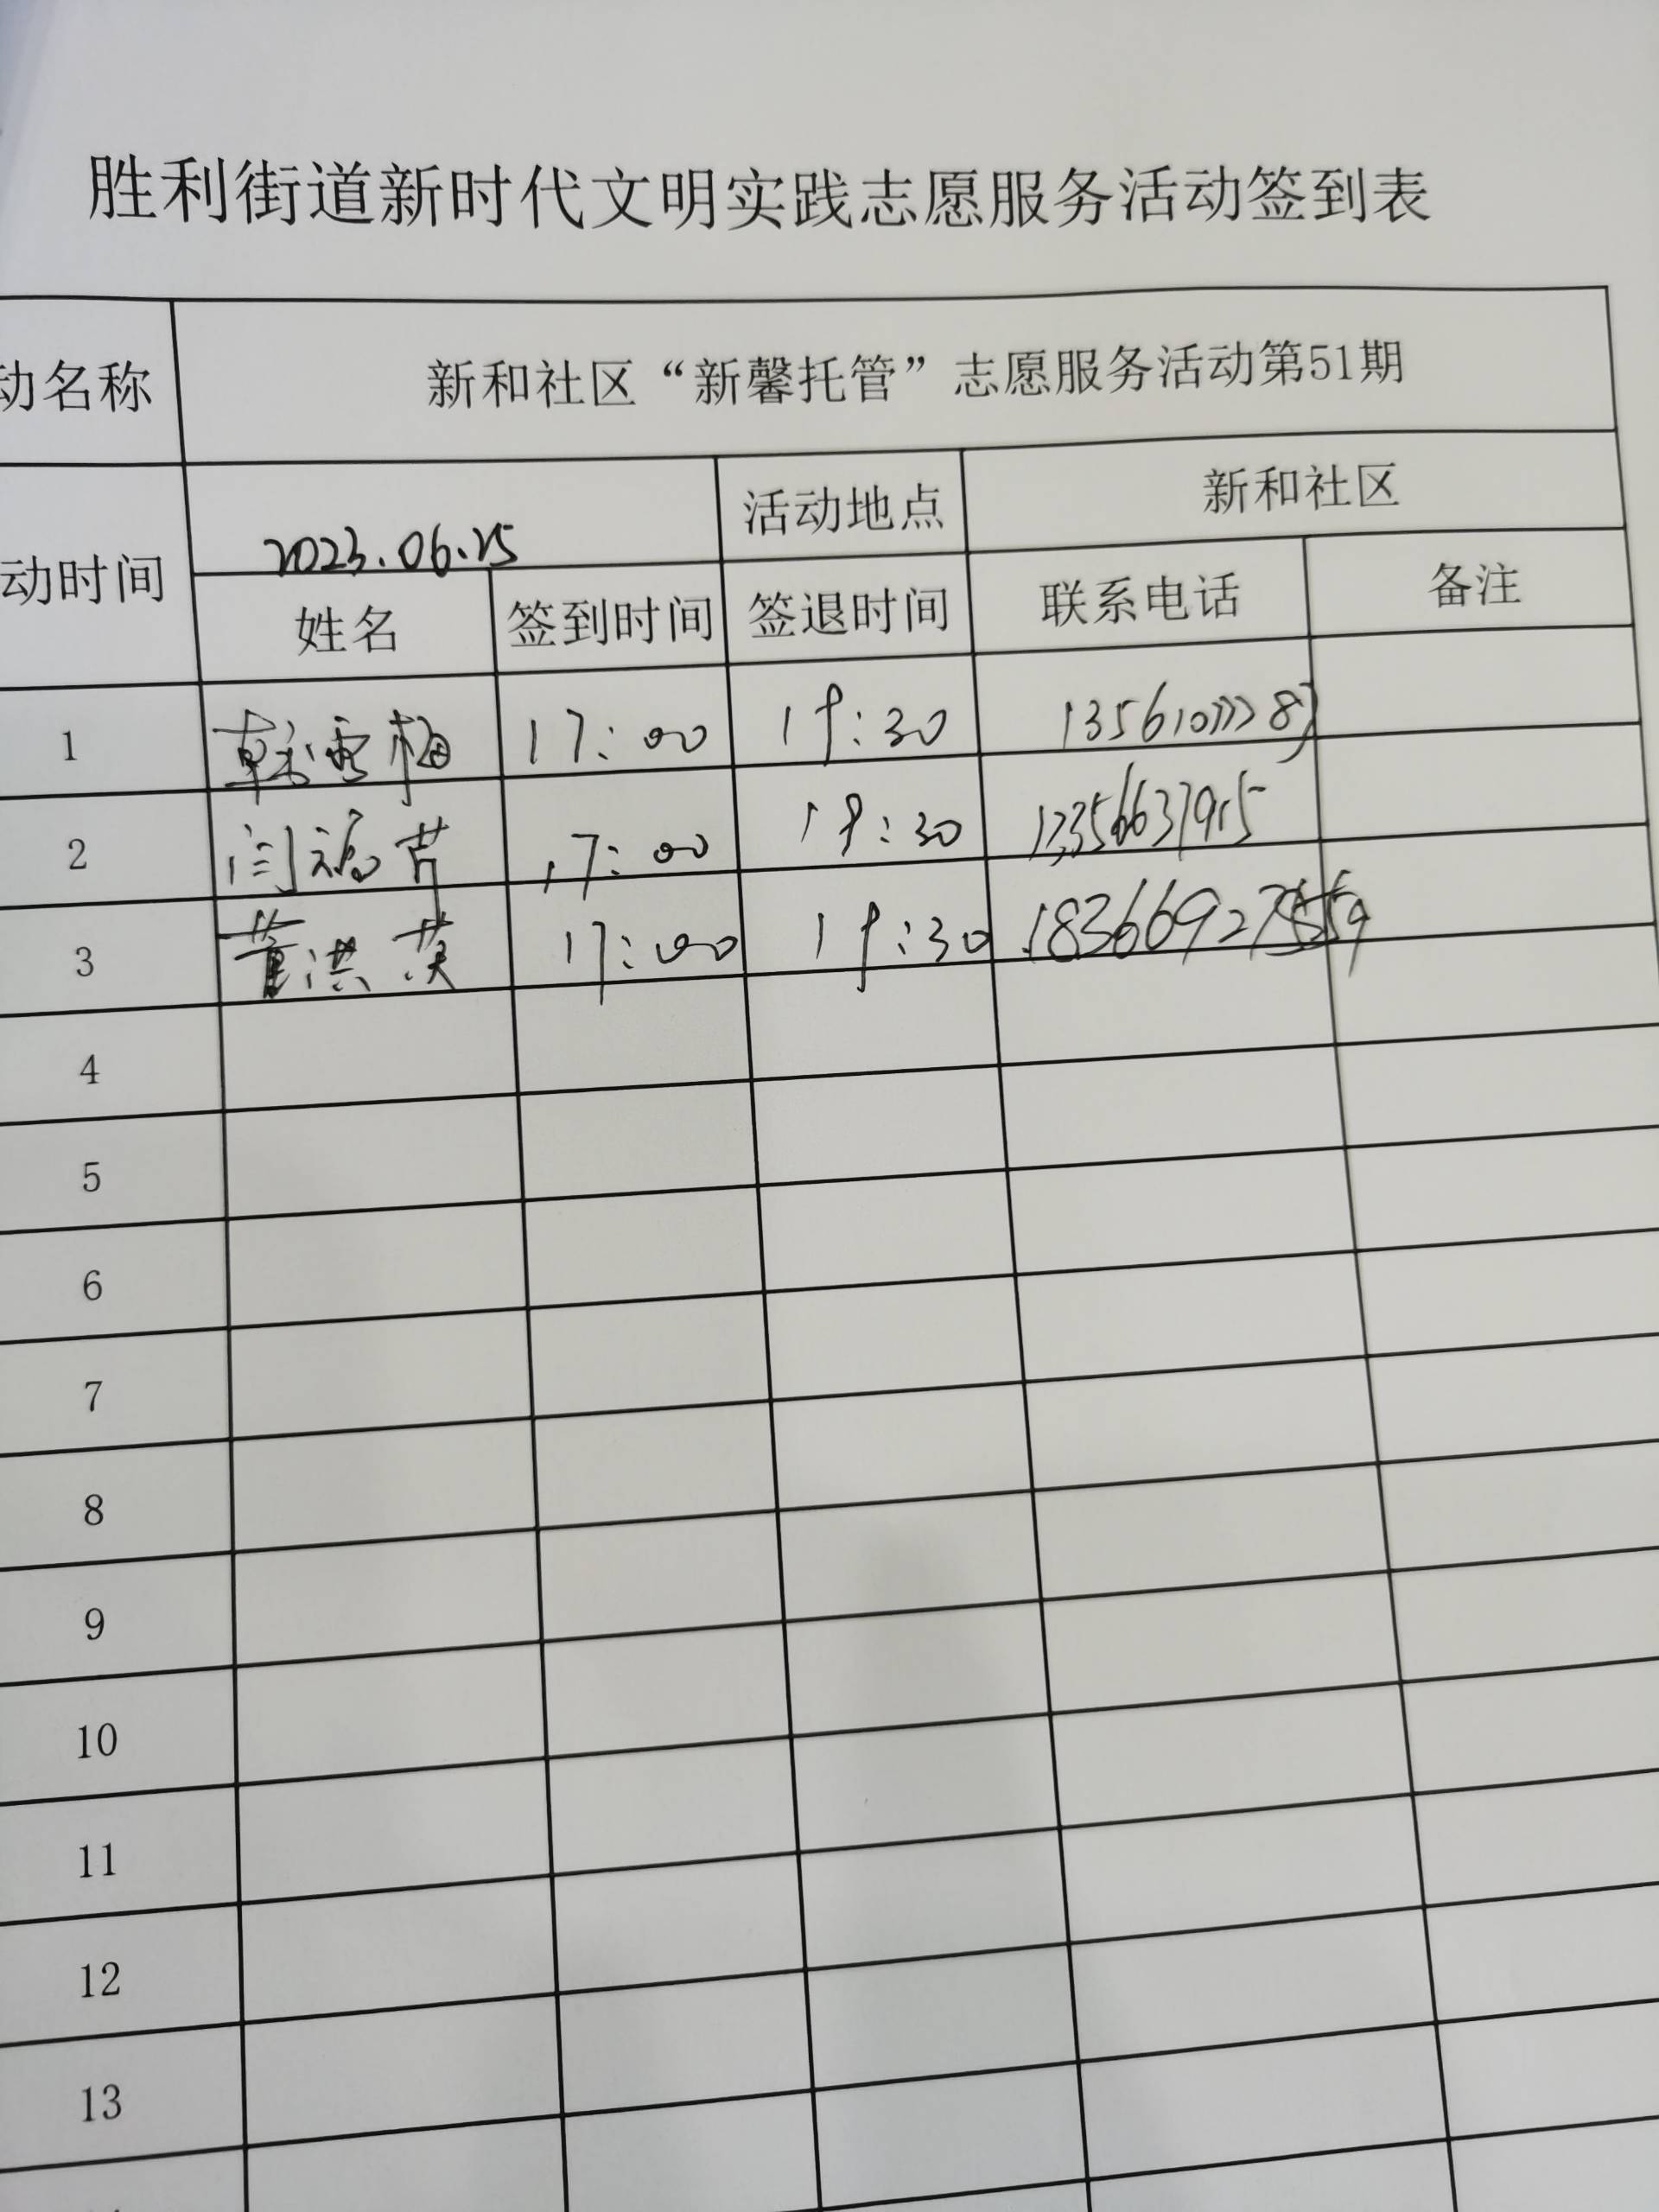 胜利街道新时代文明实践志愿服务活动签到表
动名称 新和社区“新馨托管”志愿服务活动第51期
动时间 2023.06.25 活动地点 新和社区
姓名 签到时间 签退时间 联系电话 备注
1 韩雪梅 17:00 18:30
2 闫福芹 17:00 18:30 13356637915
3 董洪英 17:00 18:30 18366927559
4
5
6
7
8
9
10
11
12
13